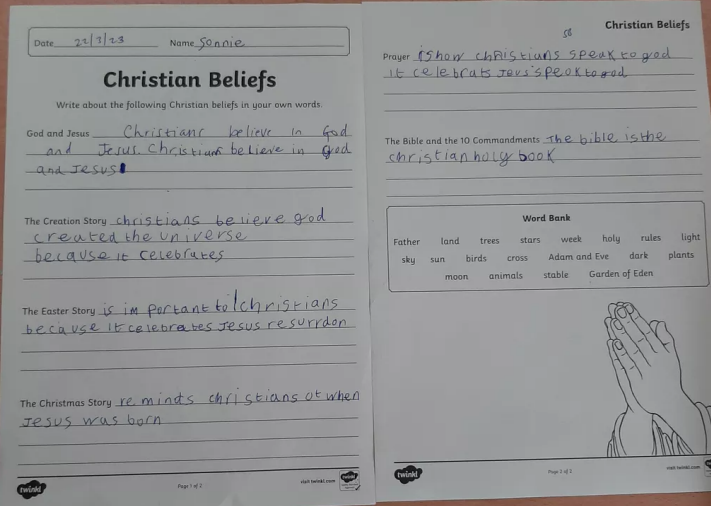 Date 22/2/23 Name Sonnie
Christian Beliefs
Write about the following Christian beliefs in your own words.
God and Jesus Christians believe in God
and Jesus. Christians believe in god
and Jesus
The Creation Story christians believe god
created the universe
because it celebrates
The Easter Story is important to christians
because it celebrates Jesus resurrdon
The Christmas Story reminds christians of when
Jesus was born
twinkl
Page 1 of 2
visit twinkl.com
Christian Beliefs
Prayer is how christians speak to god
it celebrats speak to god
The Bible and the 10 Commandments The bible is the
christian holy book
Word Bank
Father land trees stars week holy rules light
sky sun birds cross Adam and Eve dark plants
moon animals stable Garden of Eden
twinkl
Page 2 of 2
visit twinkl.com